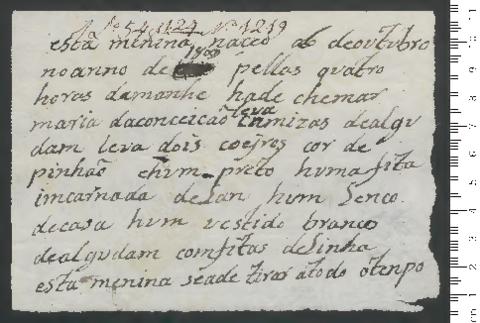 Fs 54 1127 Nº 1219
esta menina naceo a 6 deoutubro
noanno de 1800 pellas quatro
horas damanhe hade chemar
maria daconceicaõ leva camizas dealgu
dam leva dois coejros cor de
pinhaõ e hum preto huma fita
imcarnada de lan hum lenco
decasa hum vestido branco
dealgudam comfitas delinha
esta menina seade tirar atodo otenpo